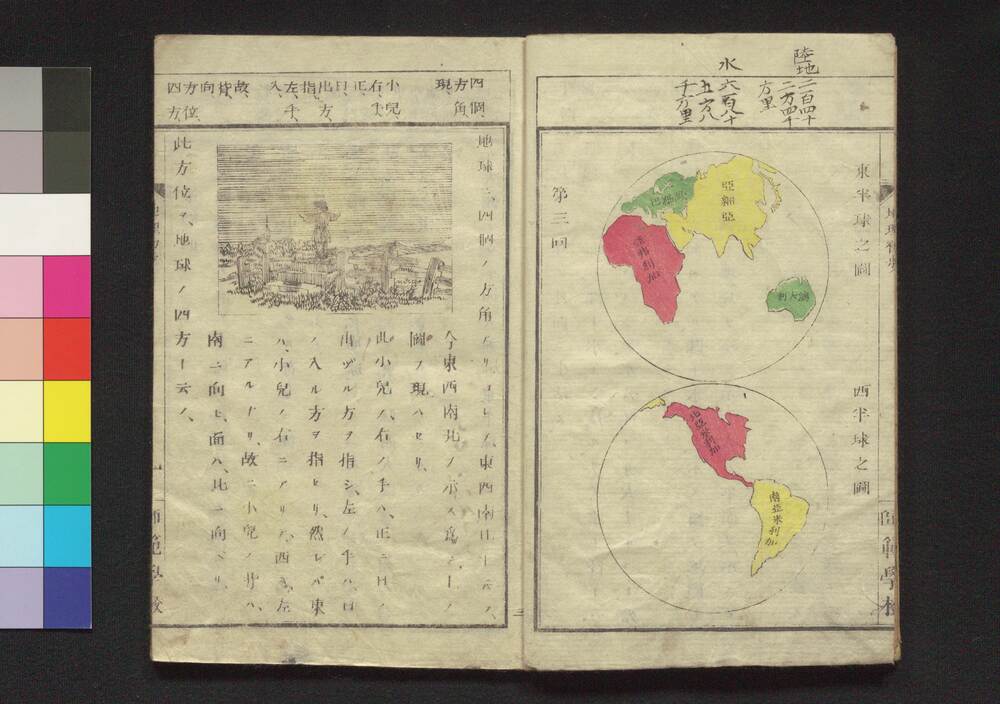 陸地
二百四十
二万四十
方里
水
六百八十
五万八
千方里
東半球之圖
亞細亞
歐羅巴
亞弗利加
西半球之圖
北亞米利加
南亞米利加
第三回
師範學校
四個ノ
方角ヲ
現
小兒
右ノ手
正
日
出方
指
左ノ手
入
故
背
向
方位
四方
地球ニ、四個ノ方角アリ
東西南北ト云フ、
今東西南北ノ
圖ヲ現ハセリ、
此小兒ノ、右ノ手ハ、正ニ日ノ
出ヅル方ヲ指シ、左ノ手ハ、日
ノ入ル方ヲ指セリ、然レバ東
ハ、小兒ノ右ニアリテ、西ハ、左
ニアルナリ、故ニ小兒ノ背ハ、
南ニ向ヒ、面ハ、北ニ向ヘリ、
此方位ヲ、地球ノ四方ト云フ、
師範學校